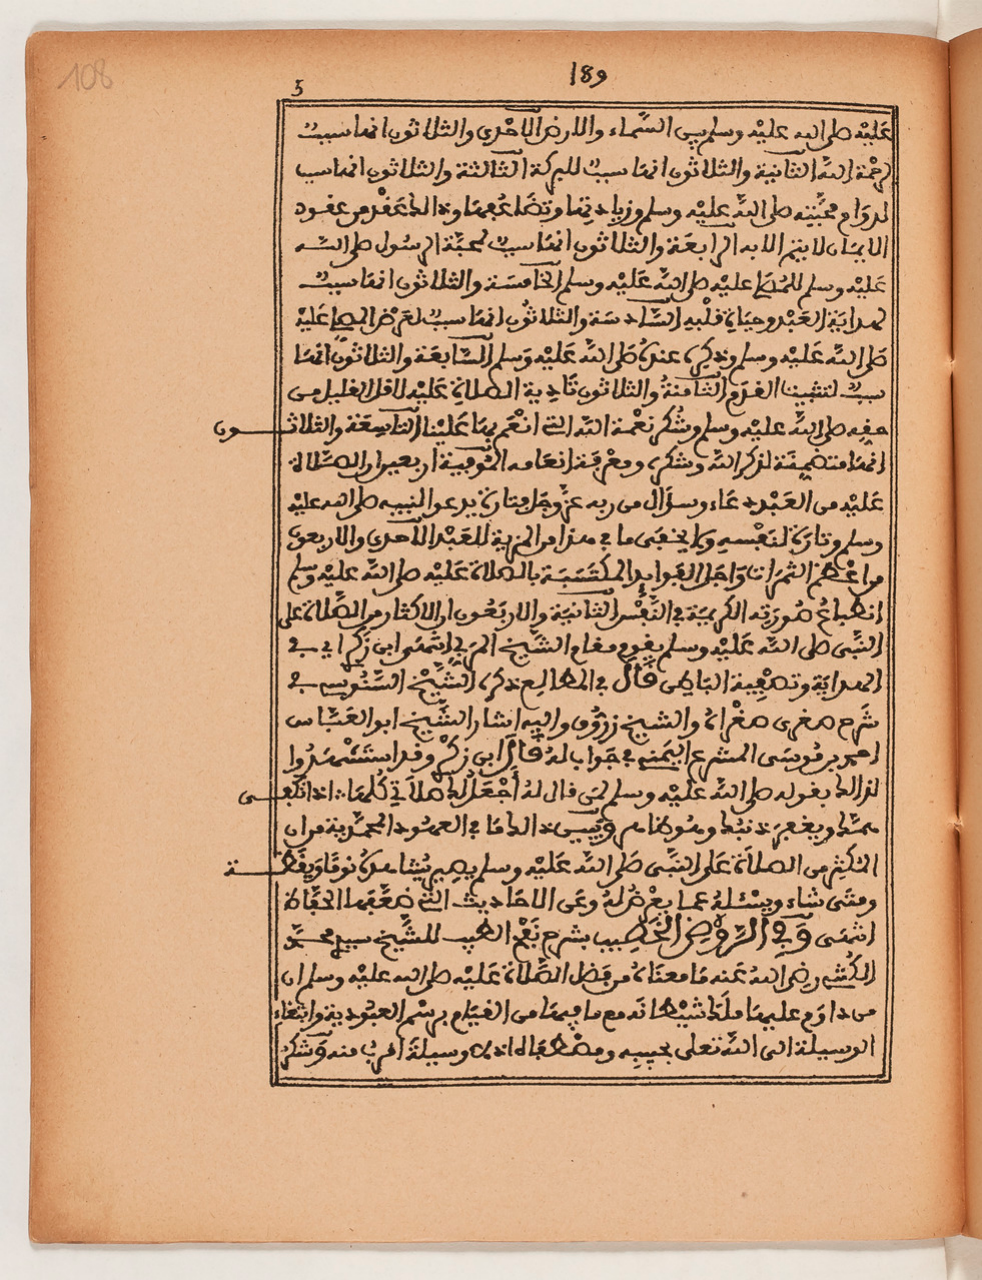 108
189
5
عليه صلى الله عليه وسلم بين السماء والارض الاحدى والثلاثون انها سبب
لرحمة الله الثانية والثلاثون انها سبب للبركة الثالثة والثلاثون انها سبب
لدوام محبته صلى الله عليه وسلم وزيادتها وتضاعفها وذالك عقد من عقود
الايمان لا يتم الا به الرابعة والثلاثون انها سبب لمحبة الرسول صلى الله
عليه وسلم للمصلى عليه صلى الله عليه وسلم الخامسة والثلاثون انها سبب
لهداية العبد وحياة قلبه السادسة والثلاثون انها سبب لعرض المصلى عليه
صلى الله عليه وسلم وذكره عنده صلى الله عليه وسلم السابعة والثلاثون انها
سبب لتثبيت القدم الثامنة والثلاثون تادية الصلاة عليه لاقل القليل من
حقه صلى الله عليه وسلم وشكر نعمة الله التى انعم بها علينا التاسعة والثلاثون
انها متضمنة لذكر الله وشكره ومعرفة انعامه الموفية اربعين ان الصلاة
عليه من العبد دعاء وسؤال من ربه عز وجل فتارة يدعو لنبيه صلى الله عليه
وسلم وتارة لنفسه ولا يخفى ما فى هذا من المزية للعبد الاحدى والاربعون
من اعظم الثمرات واجل الفوايد المكتسبة بالصلاة عليه صلى الله عليه وسلم
انطباع صورته الكريمة فى النفس الثانية والاربعون ان الاكثار من الصلاة على
النبى صلى الله عليه وسلم يقوم مقام الشيخ المربى انتهى ابن زكرى اى فى
الهداية وتصفية الباطن قال فى المطالع ذكره الشيخ السنوسى فى
شرح صغرى صغراه والشيخ زروق واليه اشار الشيخ ابو العباس
احمد بن موسى المشرع اليمنى فى جواب له قال ابن زكرى وقد استشهدوا
لذالك بقوله صلى الله عليه وسلم لمن قال له أجعل لك صلاتى كلها اذا تكفى
همك ويغفر ذنبك وهو ظاهر وبين ذالك ما فى العهود المحمدية من ان
المكثر من الصلاة على النبى صلى الله عليه وسلم يصير يشاهده نوما ويقظة
ومتى شاء ويسئله عما يعرض له وعن الاحاديث التى ضعفها الحفاظ
انتهى وفى الروض الخطيب بشرح نفح الطيب للشيخ سيدى محمد
الكنتى رضى الله عنه ما معناه من فضل الصلاة عليه صلى الله عليه وسلم ان
من داوم عليها ملك شيطانه مع ما فيها من القيام برسم العبودية وابتغاء
الوسيلة الى الله تعلى بحبيبه ومصطفاه اذ لا وسيلة اقرب منه وشكر